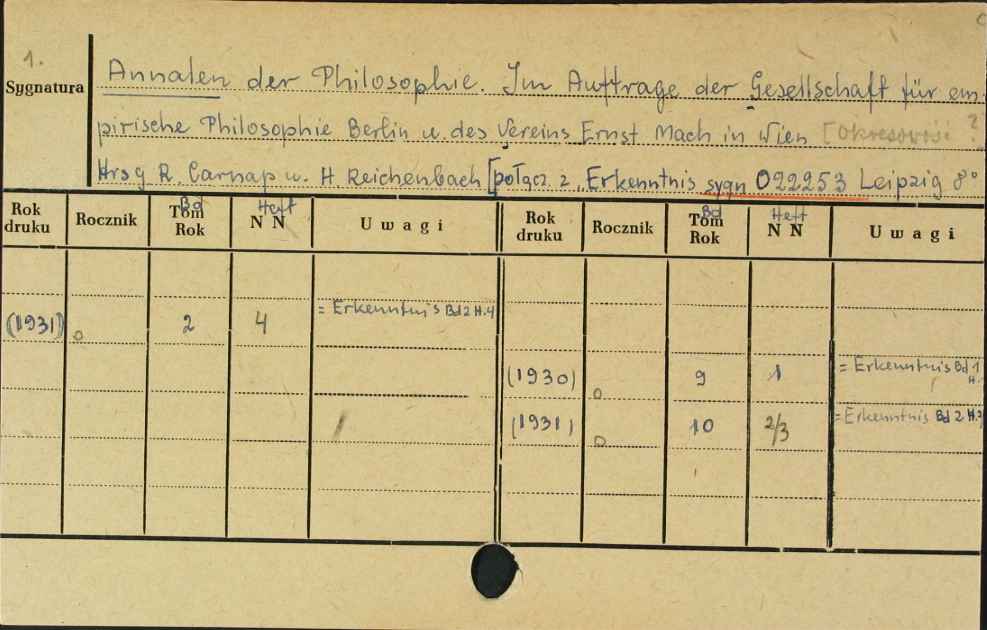 1.
Sygnatura
Annalen der Philosophie. Im Auftrage der Gesellschaft für em-
pirische Philosophie Berlin u. des Vereins Ernst Mach in Wien [Okresowość ?]
Hrsg R. Carnap u. H. Reichenbach [połącz. z „Erkenntnis sygn 022253 Leipzig 8°
Rok druku Rocznik Bd Tom Rok Heft NN Uwagi Rok druku Rocznik Bd Tom Rok Heft NN Uwagi
(1931) 2 4 = Erkenntnis Bd 2 H.4
(1930) 9 1 = Erkenntnis Bd 1 H.
(1931) 10 2/3 = Erkenntnis Bd 2 H.